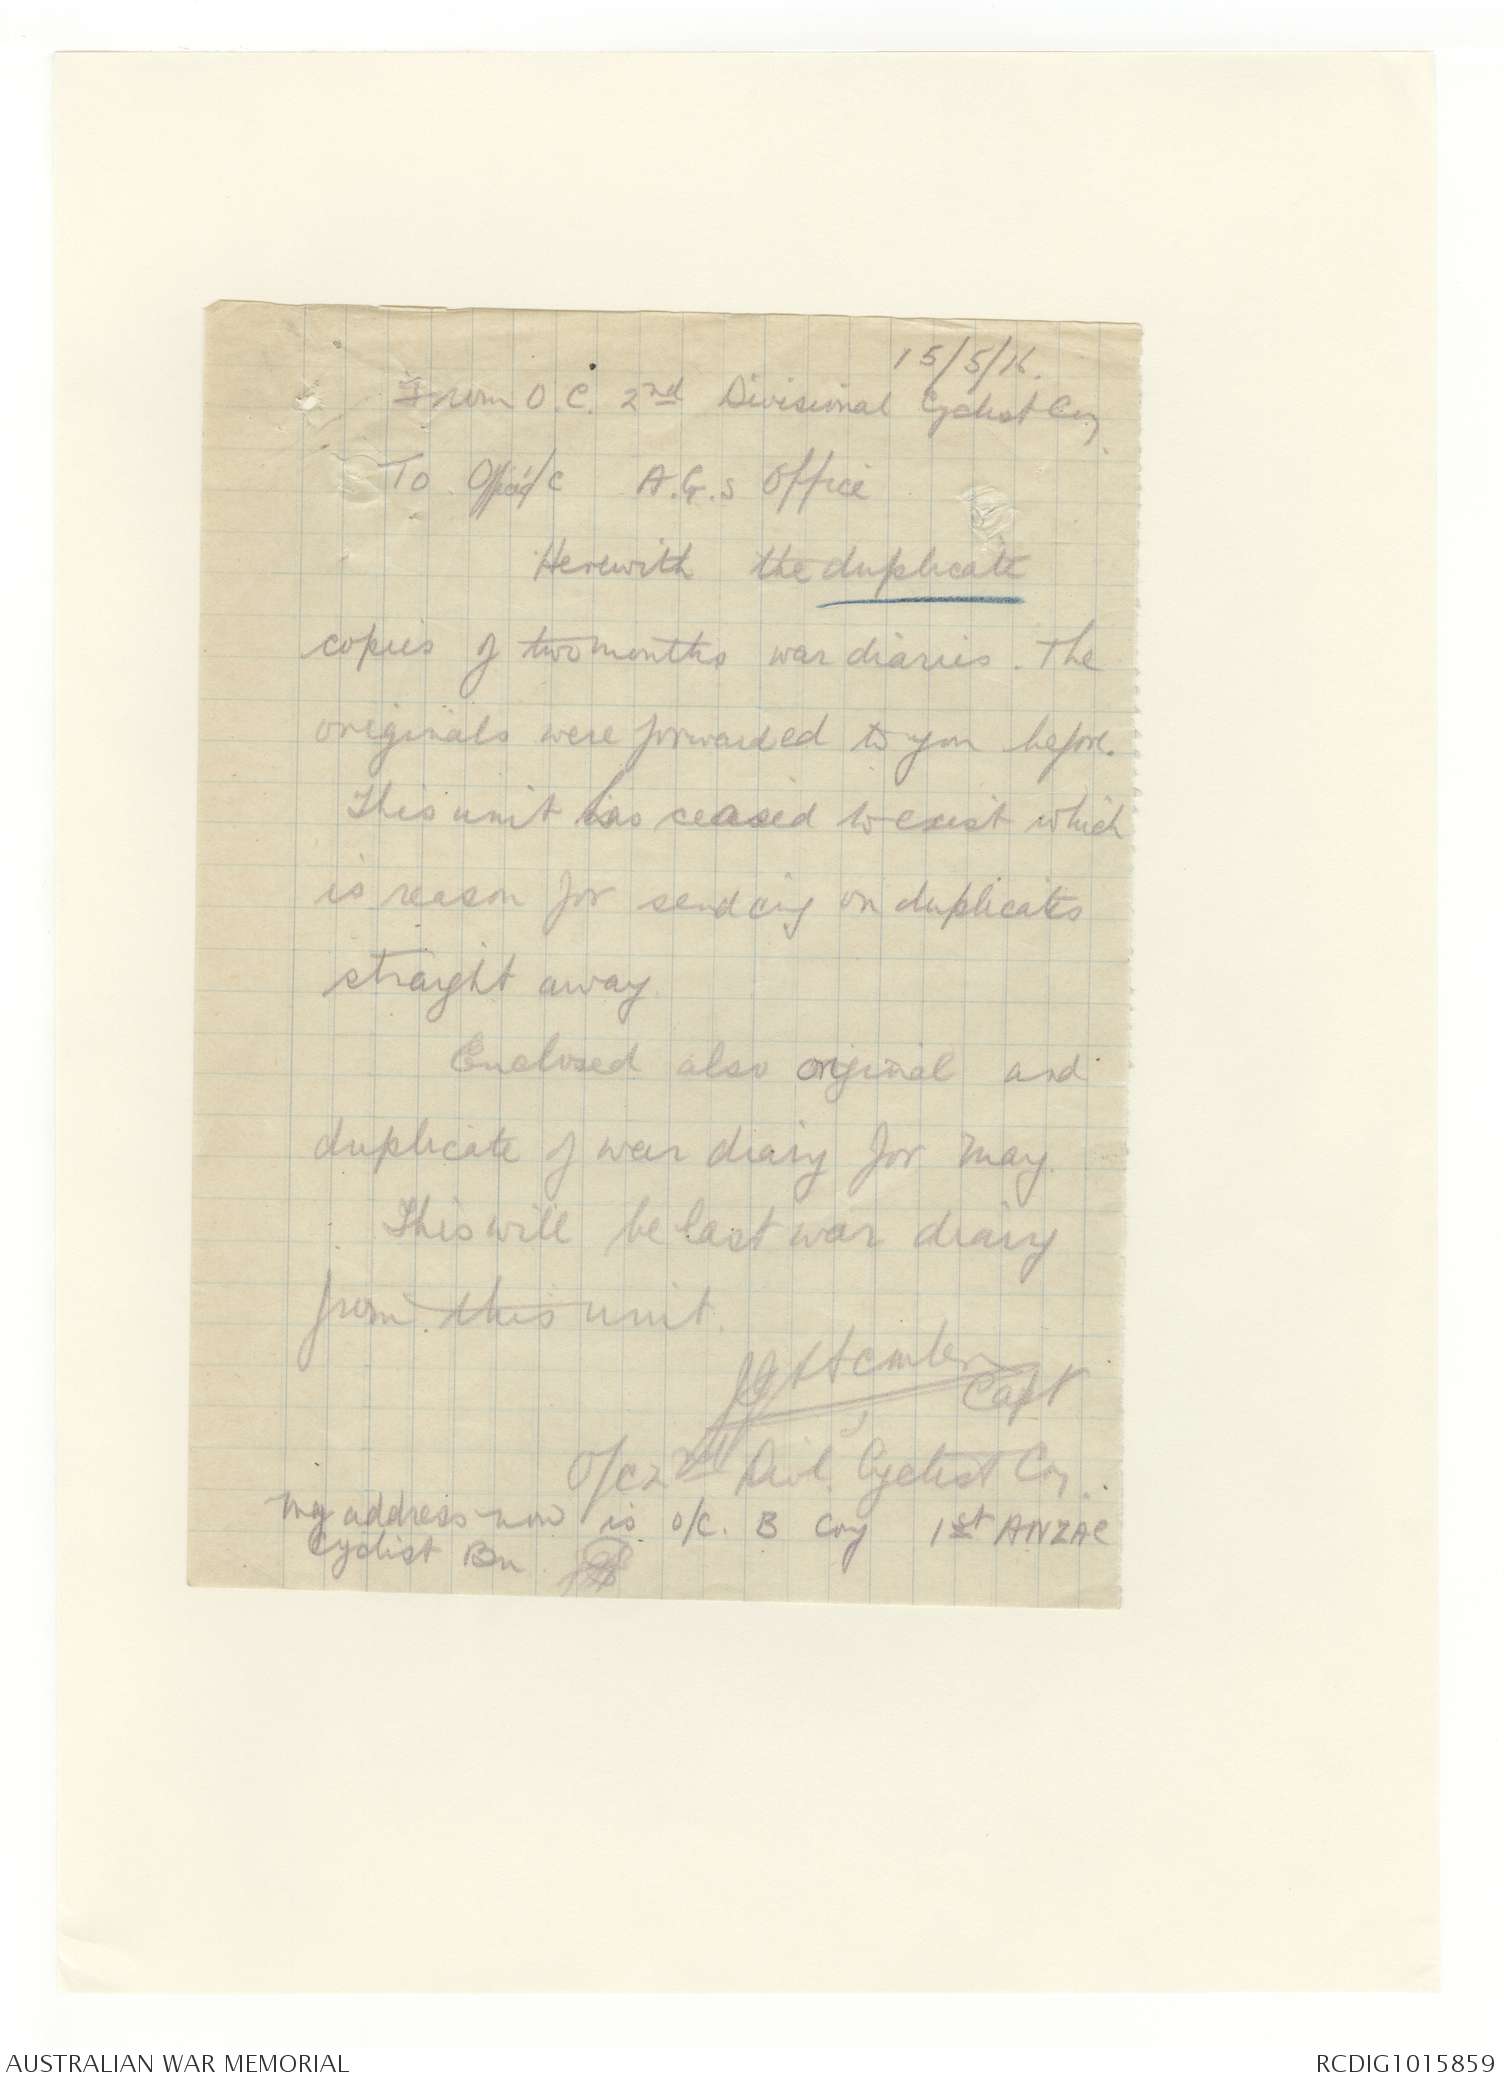 15/5/16.
From O.C. 2nd Divisional Cyclist Coy.
To O/C A.G.s Office
Herewith the duplicate
copies of two months war diaries. The
originals were forwarded to you before.
This unit has ceased to exist which
is reason for sending on duplicates
straight away.
Enclosed also original and
duplicate of war diary for May.
This will be last war diary
from this unit.
Capt
O/C 2nd Divl. Cyclist Coy.
My address now is O/C. B Coy 1st ANZAC
Cyclist Bn
AUSTRALIAN WAR MEMORIAL
RCDIG1015859